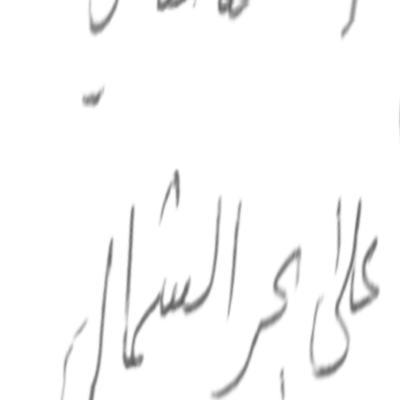 على بحر الشمال